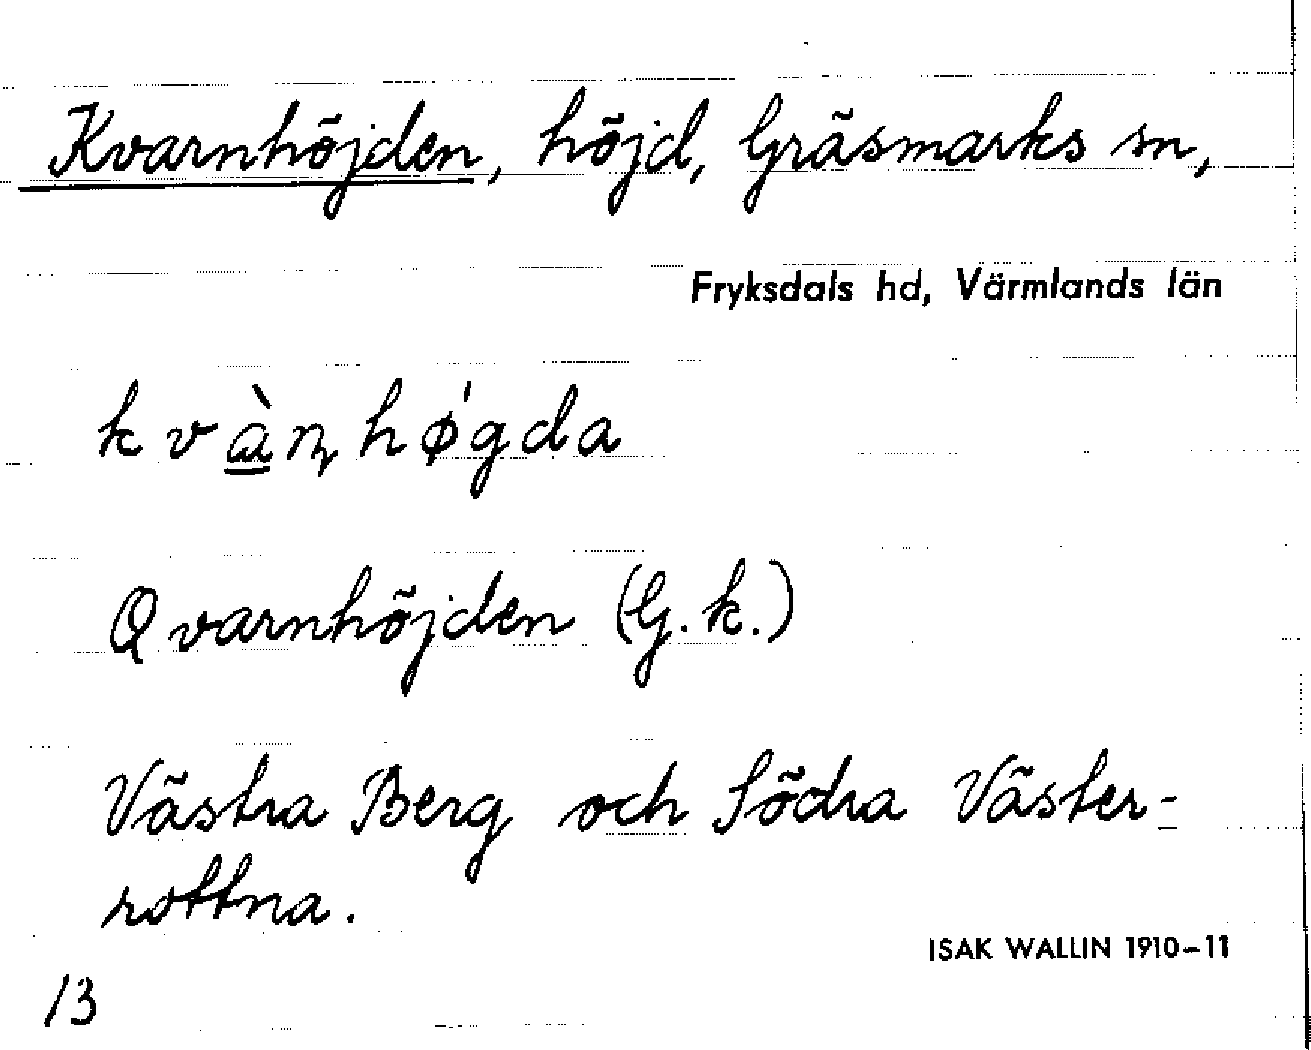 Kvarnhöjden, höjd, Gräsmarks sn,
Fryksdals hd, Värmlands län
kvàɳhǿgda
Qvarnhöjden (G.k.)
Västra Berg och Södra Väster-
rottna.
ISAK WALLIN 1910-11
13